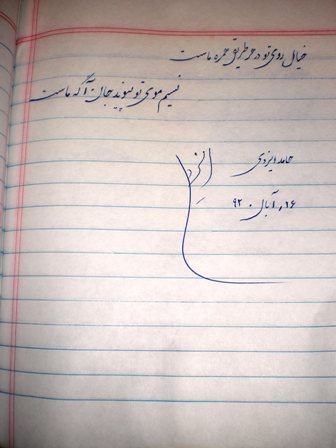 خیال روی تو در هر طریق همره ماست
نسیم موی تو پیوند جان آگه ماست
حامد ایزدی
۱۶ آبان ۹۲